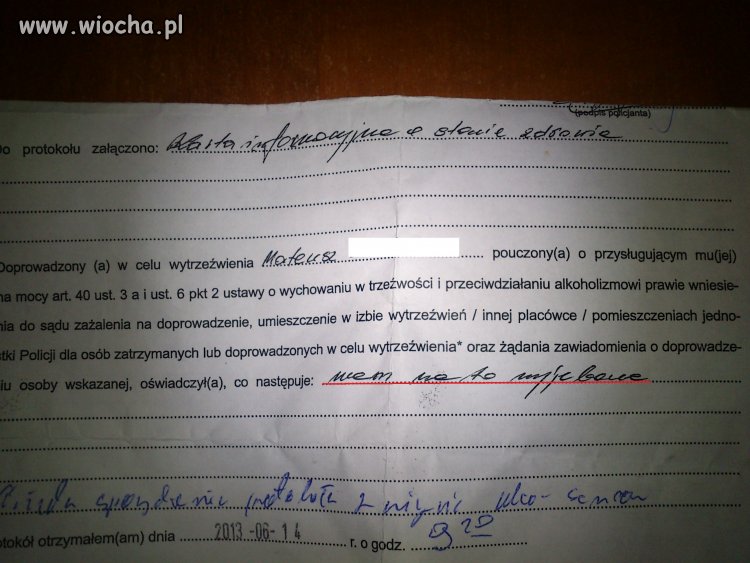 www.wiocha.pl
(podpis policjanta)
Do protokołu załączono: Karta informacyjna o stanie zdrowia
Doprowadzony (a) w celu wytrzeźwienia Mateusz pouczony(a) o przysługującym mu(jej)
na mocy art. 40 ust. 3 a i ust. 6 pkt 2 ustawy o wychowaniu w trzeźwości i przeciwdziałaniu alkoholizmowi prawie wniesie-
nia do sądu zażalenia na doprowadzenie, umieszczenie w izbie wytrzeźwień / innej placówce / pomieszczeniach jedno-
stki Policji dla osób zatrzymanych lub doprowadzonych w celu wytrzeźwienia* oraz żądania zawiadomienia o doprowadze-
niu osoby wskazanej, oświadczył(a), co następuje: mam na to wyjebane
protokołu
otokół otrzymałem(am) dnia 2013-06-14 r. o godz.